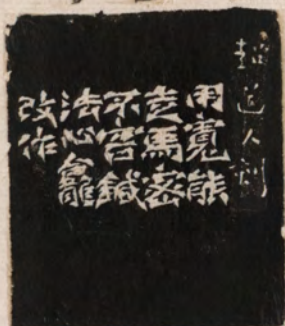 道人刻
用寬能
走馬密
不容鍼
法心龕
改作